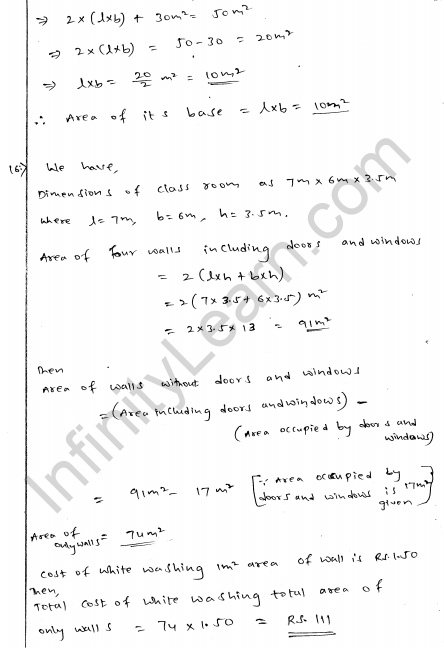 ⇒ 2×(l×b) + 30m² = 50m²
⇒ 2×(l×b) = 50-30 = 20m²
⇒ l×b = 20/2 m² = 10m²
∴ Area of its base = l×b = 10m²
16) We have,
Dimensions of class room as 7m×6m×3.5m
where l=7m, b=6m, h=3.5m.
Area of Four walls including doors and windows
= 2(l×h + b×h)
= 2(7×3.5+6×3.5) m²
= 2×3.5×13 = 91m²
Then
Area of walls without doors and windows
= (Area including doors and windows) -
(Area occupied by doors and windows)
= 91m² - 17m² [∵ Area occupied by doors and windows is 17m² given]
Area of only walls = 74m²
Cost of white washing 1m² area of wall is Rs.1.50
Then,
Total cost of white washing total area of
only walls = 74×1.50 = Rs. 111
InfinityLearn.com